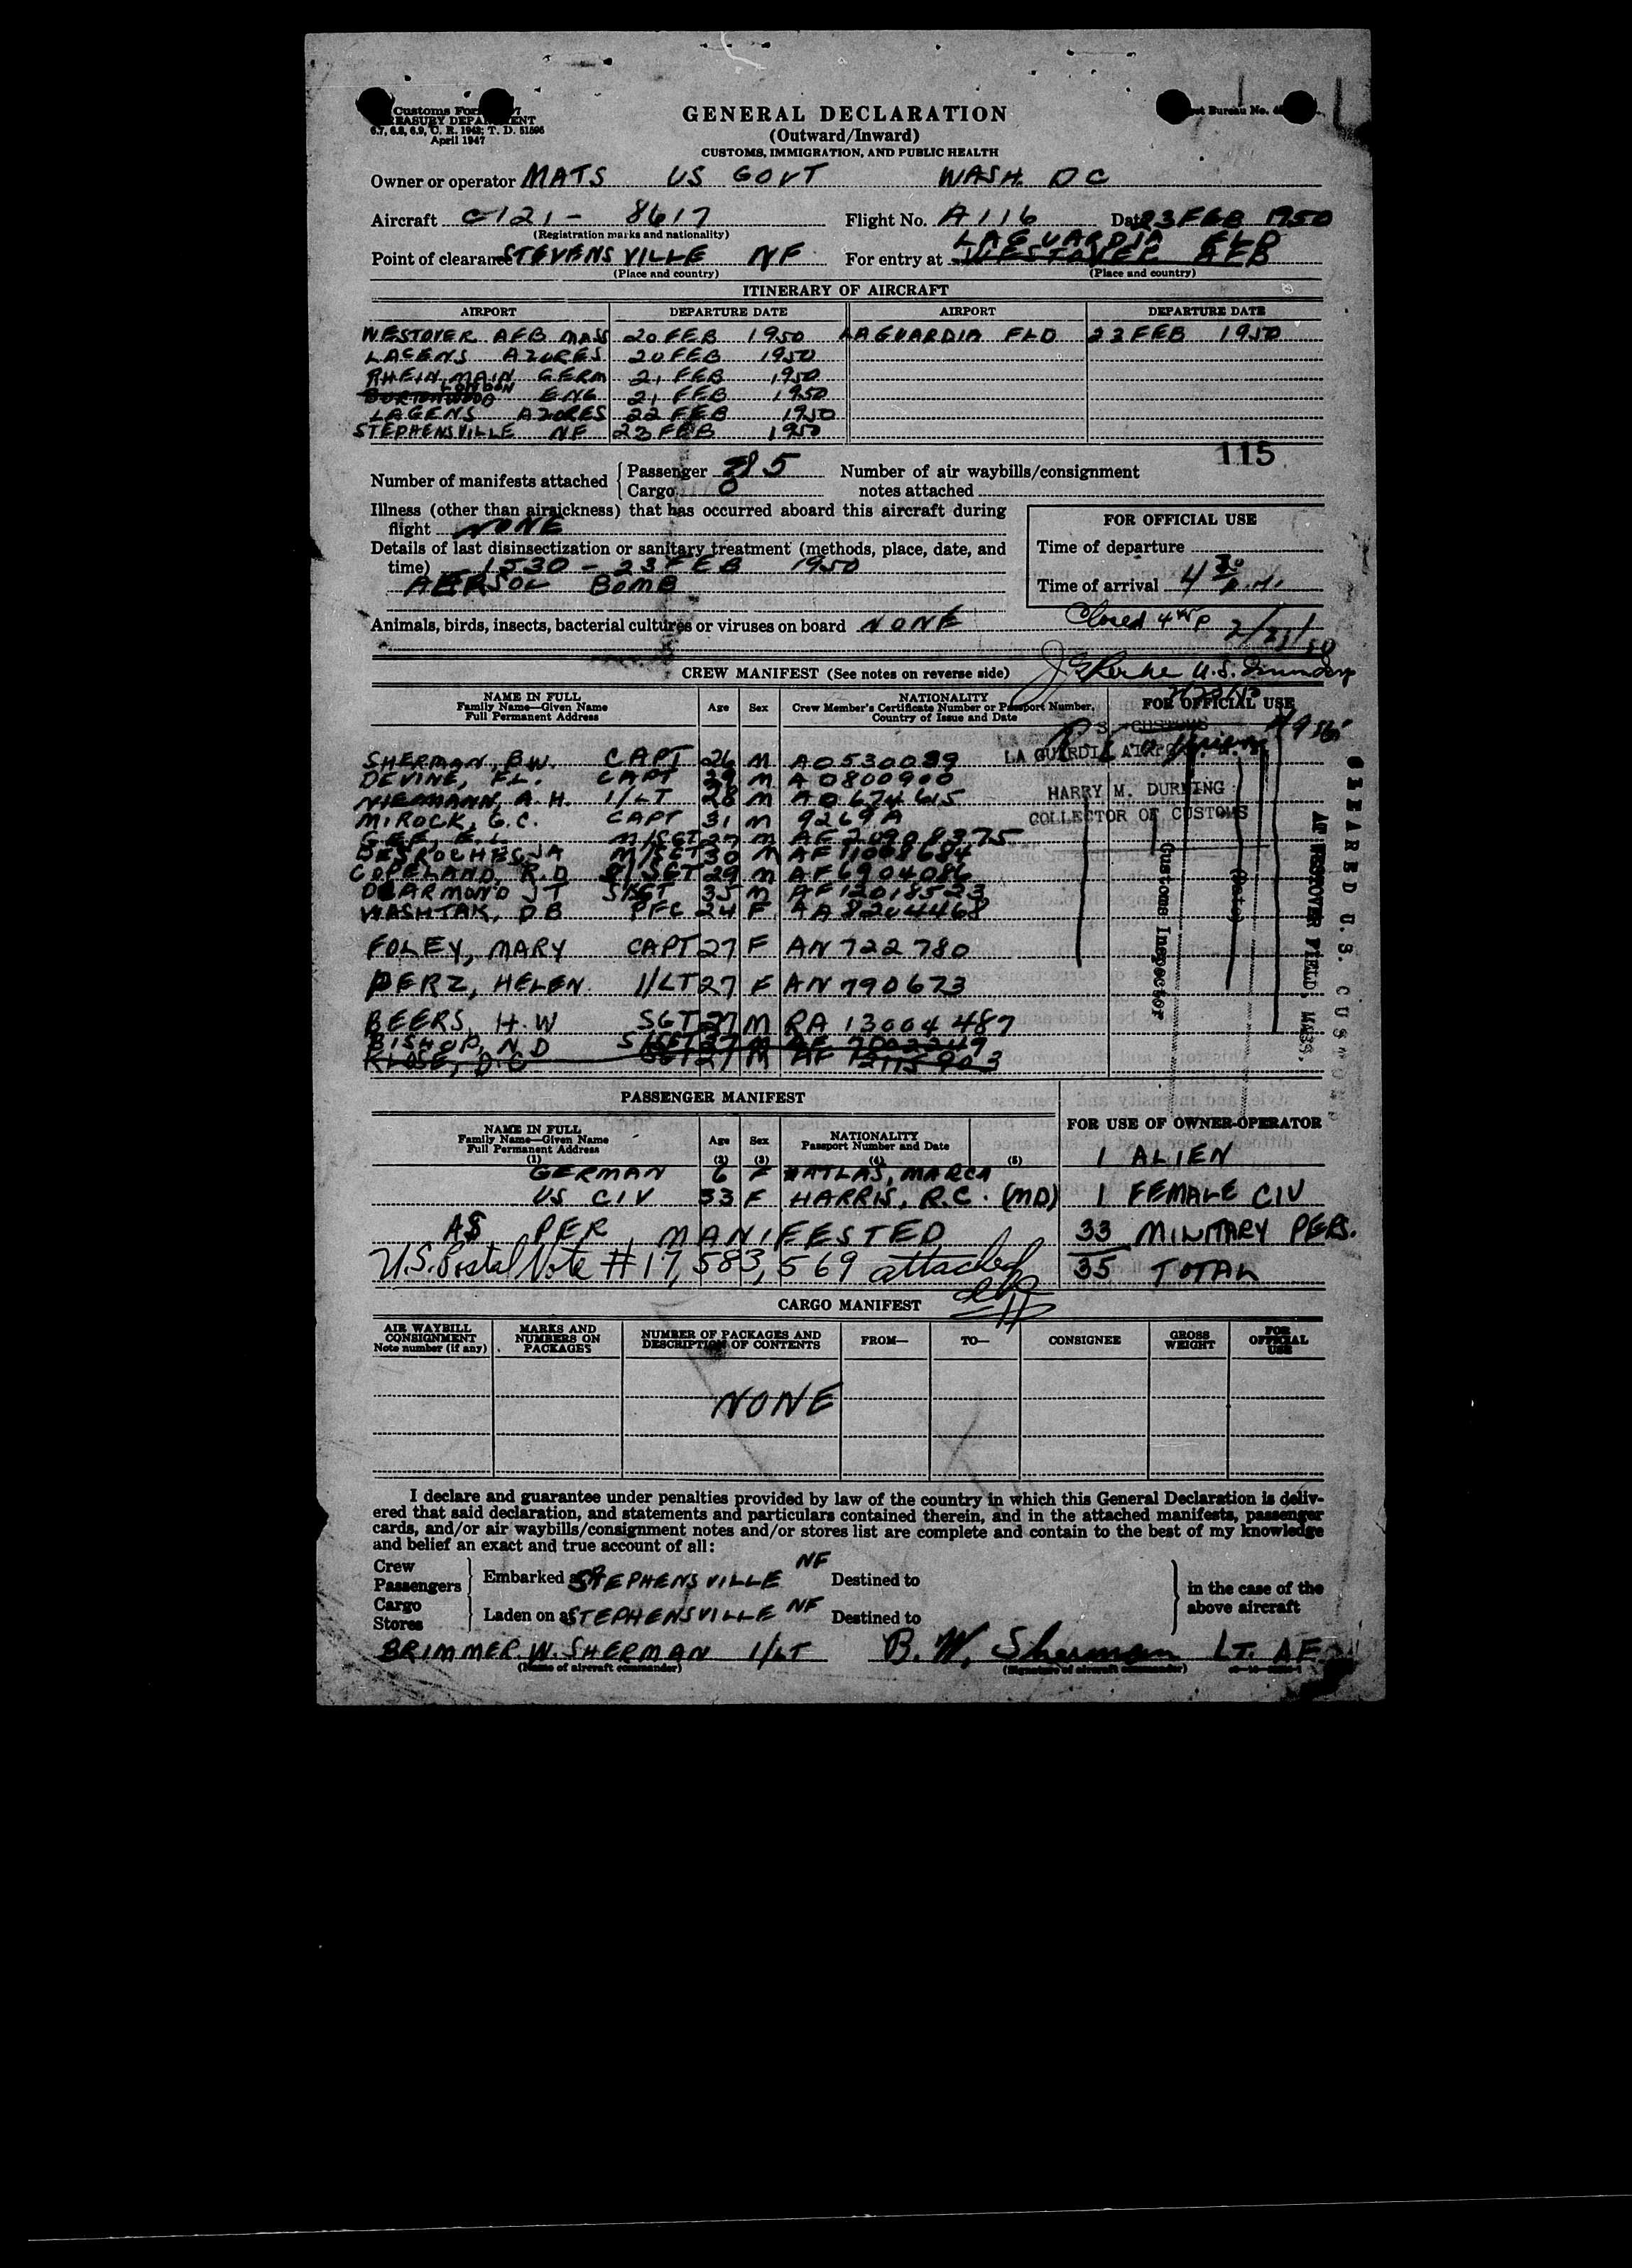 Customs Form
TREASURY DEPARTMENT
6.7, 6.8, 6.9, C. R. 1943; T. D. 51595
April 1947
GENERAL DECLARATION
(Outward/Inward)
CUSTOMS, IMMIGRATION, AND PUBLIC HEALTH
Bureau No.
Owner or operator MATS US GOVT WASH. DC
Aircraft C121- 8617 Flight No. A116 Date 23 FEB 1950
(Registration marks and nationality)
LAGUARDIA FLD
Point of clearance STEVENSVILLE NF For entry at WESTOVER AFB
(Place and country) (Place and country)
ITINERARY OF AIRCRAFT
AIRPORT DEPARTURE DATE AIRPORT DEPARTURE DATE
WESTOVER AFB MASS 20 FEB 1950 LAGUARDIA FLD 23 FEB 1950
LAGENS AZORES 20 FEB 1950
RHEIN MAIN GERM 21 FEB 1950
BURTONWOOD LONDON ENG 21 FEB 1950
LAGENS AZORES 22 FEB 1950
STEPHENSVILLE NF 23 FEB 1950
115
Number of manifests attached Passenger 35 Number of air waybills/consignment
Cargo 0 notes attached
Illness (other than airsickness) that has occurred aboard this aircraft during
flight NONE
FOR OFFICIAL USE
Details of last disinsectization or sanitary treatment (methods, place, date, and
time) 1530 - 23 FEB 1950
AERSOL BOMB
Time of departure
Time of arrival 4 30 P.M.
Animals, birds, insects, bacterial cultures or viruses on board NONE
Closed 4 45 P 2/23/50
CREW MANIFEST (See notes on reverse side)
NAME IN FULL
Family Name—Given Name
Full Permanent Address
Age Sex
NATIONALITY
Crew Member's Certificate Number or Passport Number,
Country of Issue and Date
FOR OFFICIAL USE
U S CUSTOMS
LA GUARDIA AIRPORT
HARRY M. DURNING
COLLECTOR OF CUSTOMS
SHERMAN, B.W. CAPT 26 M AO530089
DEVINE, F.L. CAPT 29 M AO800900
NIERMANN, A.H. 1/LT 28 M AO674615
MIROCK, G.C. CAPT 31 M 9269A
GEE, E.L. M/SGT 27 M AF 20908375
DESROCHES JA M/SGT 30 M AF 11008684
COPELAND, R.D S/SGT 29 M AF6904086
DEARMOND JT S/SGT 35 M AF12018523
WASHTAK, DB PFC 24 F AA8204468
FOLEY, MARY CAPT 27 F AN 722780
PERZ, HELEN 1/LT 27 F AN 790673
BEERS, H.W SGT 27 M RA 13004487
BISHOP, N D S/SGT 37 M AF 7002349
KLOSE, D C SGT 27 M AF 12115903
Customs Inspector
(Date)
CLEARED U.S. CUSTOMS
AT WESTOVER FIELD, MASS.
PASSENGER MANIFEST
NAME IN FULL
Family Name—Given Name
Full Permanent Address
(1)
Age
(2)
Sex
(3)
NATIONALITY
Passport Number and Date
(4) (5)
FOR USE OF OWNER-OPERATOR
GERMAN 6 F ATLAS, MARCA 1 ALIEN
US CIV 33 F HARRIS, R.C. (MD) 1 FEMALE CIV
AS PER MANIFESTED 33 MILITARY PERS.
U.S. Postal Note #17,583,569 attached 35 TOTAL
CARGO MANIFEST
AIR WAYBILL
CONSIGNMENT
Note number (if any)
MARKS AND
NUMBERS ON
PACKAGES
NUMBER OF PACKAGES AND
DESCRIPTION OF CONTENTS
FROM— TO— CONSIGNEE
GROSS
WEIGHT
FOR
OFFICIAL
USE
NONE
I declare and guarantee under penalties provided by law of the country in which this General Declaration is deliv-
ered that said declaration, and statements and particulars contained therein, and in the attached manifests, passenger
cards, and/or air waybills/consignment notes and/or stores list are complete and contain to the best of my knowledge
and belief an exact and true account of all:
Crew
Passengers Embarked at STEPHENSVILLE NF Destined to
Cargo
Stores Laden on at STEPHENSVILLE NF Destined to
in the case of the
above aircraft
BRIMMER W. SHERMAN 1/LT B. W. Sherman LT. AF
(Name of aircraft commander) (Signature of aircraft commander)